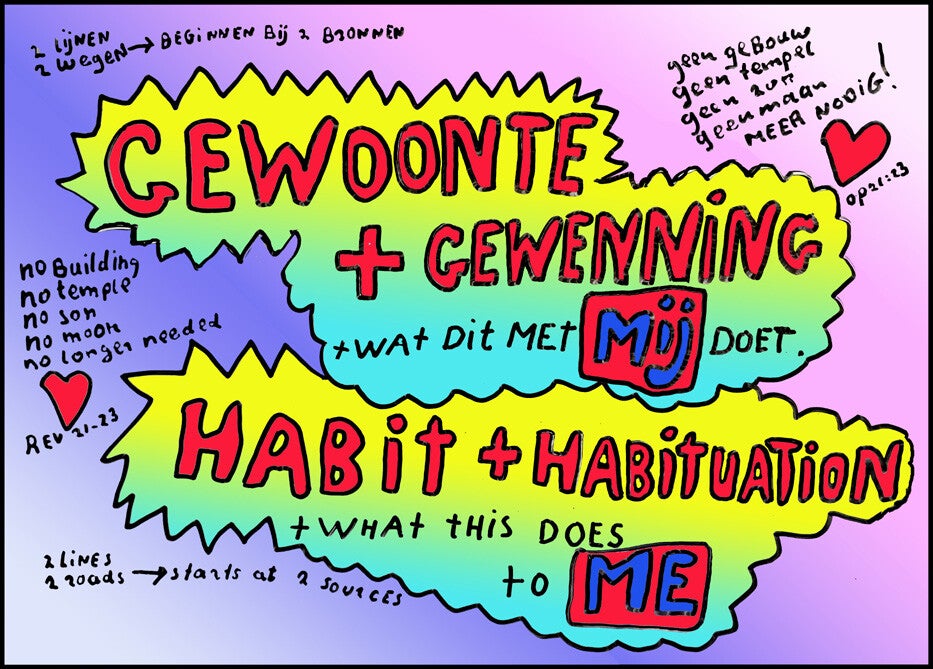 2 LIJNEN
2 wegen → BEGINNEN Bij 2 BRONNEN
geen geBouw
geen tempel
geen zon
geen maan
MEER NODIG!
OP 21:23
GEWOONTE
+ GEWENNiNG
+ WAt Dit MEt Mij DOEt.
no Building
no temple
no son
no moon
no longer needed
REV 21-23
HABit + HABituAtiON
+ WHAt tHiS DOES
to ME
2 LiNES
2 roads → starts at 2 sources